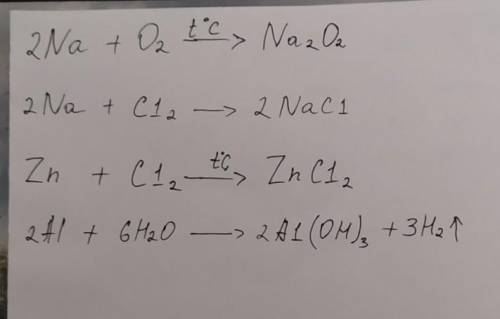 2Na + O₂ —t°C→ Na₂O₂
2Na + Cl₂ → 2NaCl
Zn + Cl₂ —t°C→ ZnCl₂
2Al + 6H₂O → 2Al(OH)₃ + 3H₂↑